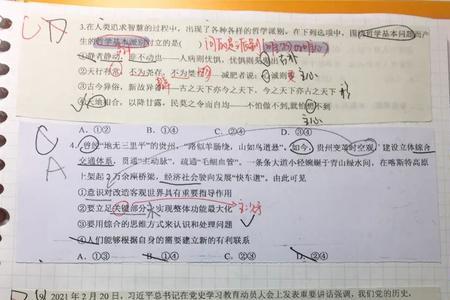 3.在人类追求智慧的过程中，出现了各种各样的哲学派别，在下列选项中，围绕哲学基本问题而产
生的哲学基本派别对立的是(　)
①群者静动，
——人病则忧惧，忧惧则
②天行有常，不为尧存，不为桀
减肥者说：
③古今异俗，新故异
——古之天下亦今之天下，今之天下亦古之天下
④天地相合，以降甘露，民莫之令而自均——不怕做不到，就怕想不到
A. ①②　B. ①③　C. ②④　D. ③④
4. 曾经"地无三里平"的贵州，"路似羊肠绕，山如鸟道悬"，如今，贵州变革时空观，建设立体综合
交通体系，贯通"主动脉"，疏通"毛细血管"，一条条大道小径蜿蜒于青山绿水间，在喀斯特高原
上架起2万余座桥梁，经济社会驶向发展"快车道"。由此可见
①意识对改造客观世界具有重要指导作用
②要立足关键部分实现整体功能最大化
③要用综合的思维方式来认识和处理问题
④人们能够根据自身的需要建立新的有利联系
A. ①③　B. ①④　C. ②③　D. ②④
2021年2月20日，习近平总书记在党史学习教育动员大会上发表重要讲话强调，我们党的历史，